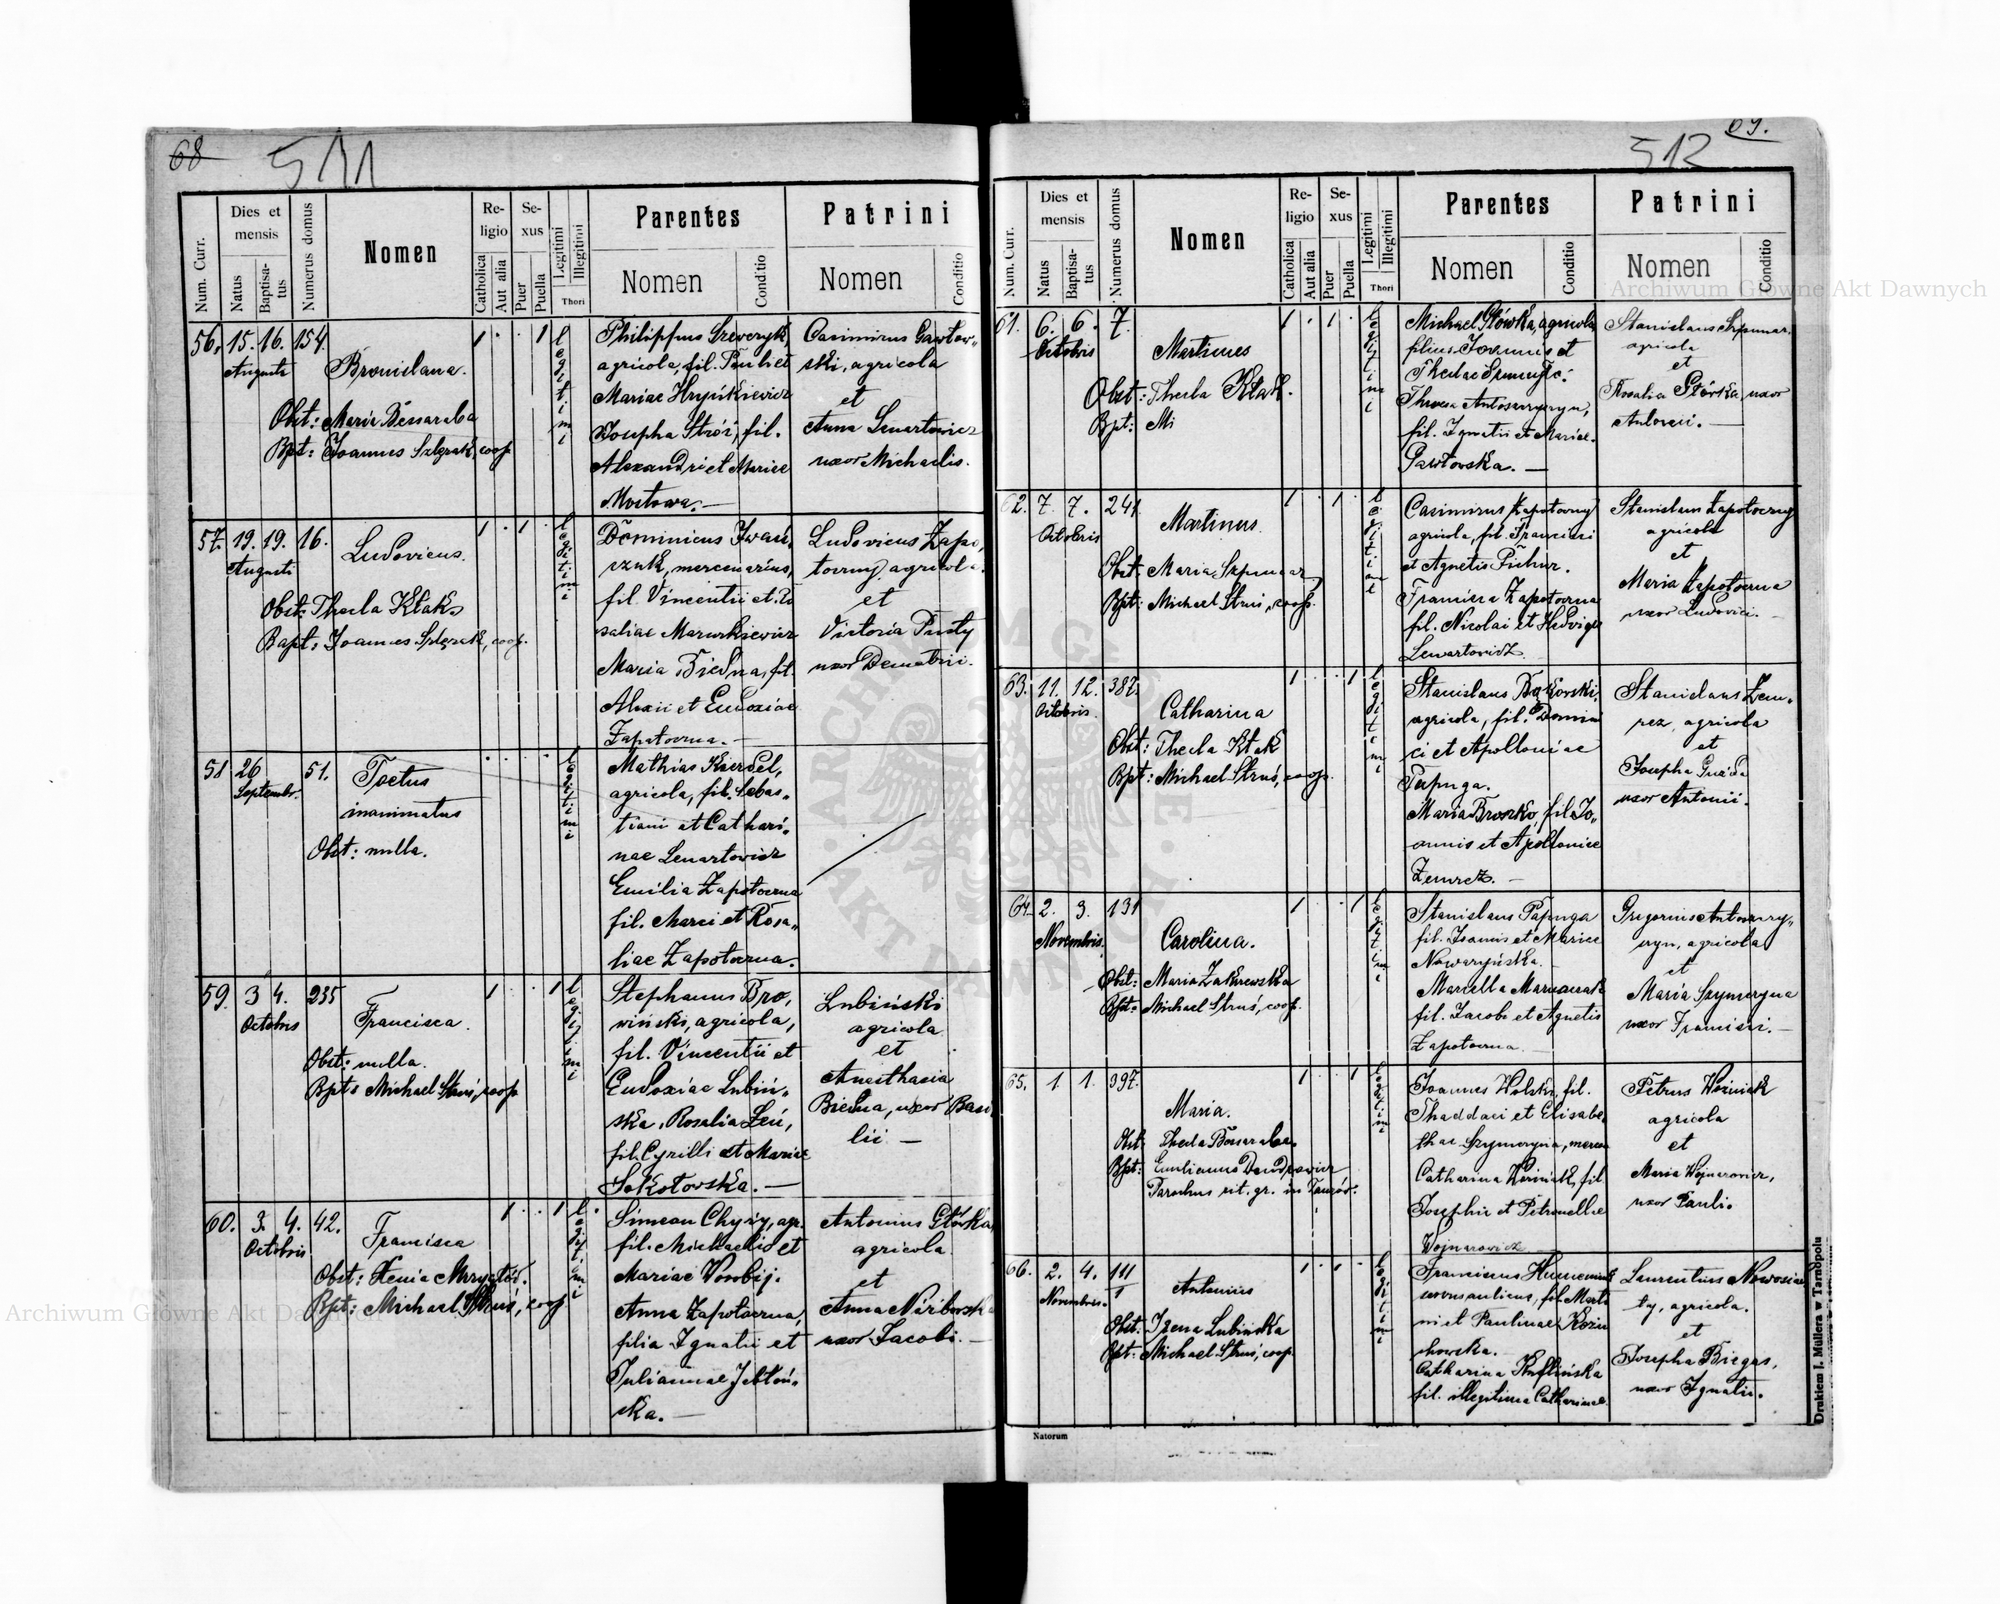 68
511
Num. Curr.
Dies et
mensis
Natus
Baptisa-
tus
Numerus domus
Nomen
Re-
ligio
Catholica
Aut alia
Se-
xus
Puer
Puella
Legitimi
Illegitimi
Thori
Parentes
Nomen
Conditio
Patrini
Nomen
Conditio
56. 15. 16. 154.
Augusti
Bronislava.
Obst: Maria Bessaraba
Bpt: Joannes Szlęzak, coop.
1 . . 1
legitimi
Philippus Szewczyk,
agricola, fil. Pauli et
Mariae Hryńkiewicz
Josepha Stróż, fil.
Alexandri et Mariae
Mostowa. —
Casimirus Gawłow-
ski, agricola
et
Anna Lenartowicz
uxor Michaelis.
57. 19. 19. 16.
Augusti
Ludovicus.
Obst: Thecla Kłak
Bapt: Joannes Szlęzak, coop.
1 . 1
legitimi
Dominicus Iwań-
czuk, mercenarius,
fil. Vincentii et Ro
saliae Mazurkiewicz
Maria Biedna, fil.
Alexii et Eudoxiae
Zapotoczna. —
Ludovicus Zapo-
toczny, agricola.
et
Victoria Pusty
uxor Demetrii.
58 26 51.
Septembr.
Foetus
inanimatus
Obst: nulla.
legitimi
Mathias Kierdel,
agricola, fil. Sebas-
tiani et Cathari-
nae Lenartowicz
Emilia Zapotoczna
fil. Marci et Rosa-
liae Zapotoczna.
59. 3 4. 235
Octobris
Francisca.
Obst: nulla.
Bpt: Michael Struś, coop.
1 . . 1
legitimi
Stephanus Bro-
wiński, agricola,
fil. Vincentii et
Eudoxiae Lubiń-
ska, Rosalia Leń,
fil. Cyrilli et Mariae
Sokołowska. —
Lubiński
agricola
et
Anasthasia
Biedna, uxor Basi
lii —
60. 3. 4. 42.
Octobris
Francisca
Obst: Xenia
Bpt: Michael Struś, coop.
1 . . 1
legitimi
Simeon Chyży, agr.
fil. Michaelis et
Mariae Worobij.
Anna Zapotoczna,
filia Ignatii et
Juliannae Jabłoń-
ska. —
Antonius Główka,
agricola
et
Anna
uxor Jacobi. —
69.
512
Num. Curr.
Dies et
mensis
Natus
Baptisa-
tus
Numerus domus
Nomen
Re-
ligio
Catholica
Aut alia
Se-
xus
Puer
Puella
Legitimi
Illegitimi
Thori
Parentes
Nomen
Conditio
Patrini
Nomen
Conditio
61. 6. 6. 7.
Octobris
Martinus
Obst: Thecla Kłak.
Bpt: Mi
1 . 1 .
legitimi
Michael Główka, agricola
filius Joannis et
Theclae
Theresa Antoszczyszyn,
fil. Ignatii et Mariae
Pawłowska. —
Stanislaus Szpunar,
agricola
et
Rosalia Główka, uxor
Antonii. —
62. 7. 7. 241
Octobris
Martinus
Obst: Maria Szpunar
Bpt: Michael Struś, coop.
1 . 1 .
legitimi
Casimirus Zapotoczny
agricola, fil. Francisci
et Agnetis
Francisca Zapotoczna
fil. Nicolai et Hedviges
Lenartowicz
Stanislaus Zapotoczny
agricola
et
Maria Zapotoczna
uxor Ludovici. —
63. 11. 12. 387.
Octobris.
Catharina
Obst: Thecla Kłak
Bpt: Michael Struś, coop.
1 . . 1
legitimi
Stanislaus Bąkowski,
agricola, fil. Domini
ci et Apolloniae
Papuga.
Maria Broszko, fil. Jo-
annis et Apolloniae
Zemrcz. —
Stanislaus
agricola
et
Josepha
uxor Antonii.
64. 2. 3. 131
Novembris.
Carolina.
Obst: Maria Zakrzewska
Bpt: Michael Struś, coop.
1 . . 1
legitimi
Stanislaus Papuga
fil. Joannis et Mariae
Nowaryńska.
Marcella
fil. Jacobi et Agnetis
Zapotoczna
Gregorius Antoszczy-
szyn, agricola
et
Maria Szymczyna
uxor Francisci. —
65. 1. 1. 397.
Maria.
Obst: Thecla Bessaraba.
Bpt: Emilianus
Parochus rit. gr. in
1 . . 1
legitimi
Joannes Wolski, fil.
Thaddaei et Elisabe-
thae Szymczyna, mercen
Catharina Woźniak, fil.
Josephi et Petronellae
Wojnarowicz
Petrus Woźniak
agricola
et
Maria Wojnarowicz,
uxor Pauli.
66. 2. 4. 111
Novembris. 1
Antonius
Obst: Irena Lubińska
Bpt: Michael Struś, coop.
1 . 1 .
legitimi
Franciscus
fil. Marti
ni et Paulinae
chowska.
Catharina
fil. illegitima Catharinae
Laurentius Nowosiel
ty, agricola.
et
Josepha Biegas,
uxor Ignatii.
Natorum
Drukiem J. Mullera w Tarnopolu
Archiwum Główne Akt Dawnych
Archiwum Główne Akt Dawnych
ARCHIWUM GŁÓWNE · AKT DAWNYCH ·